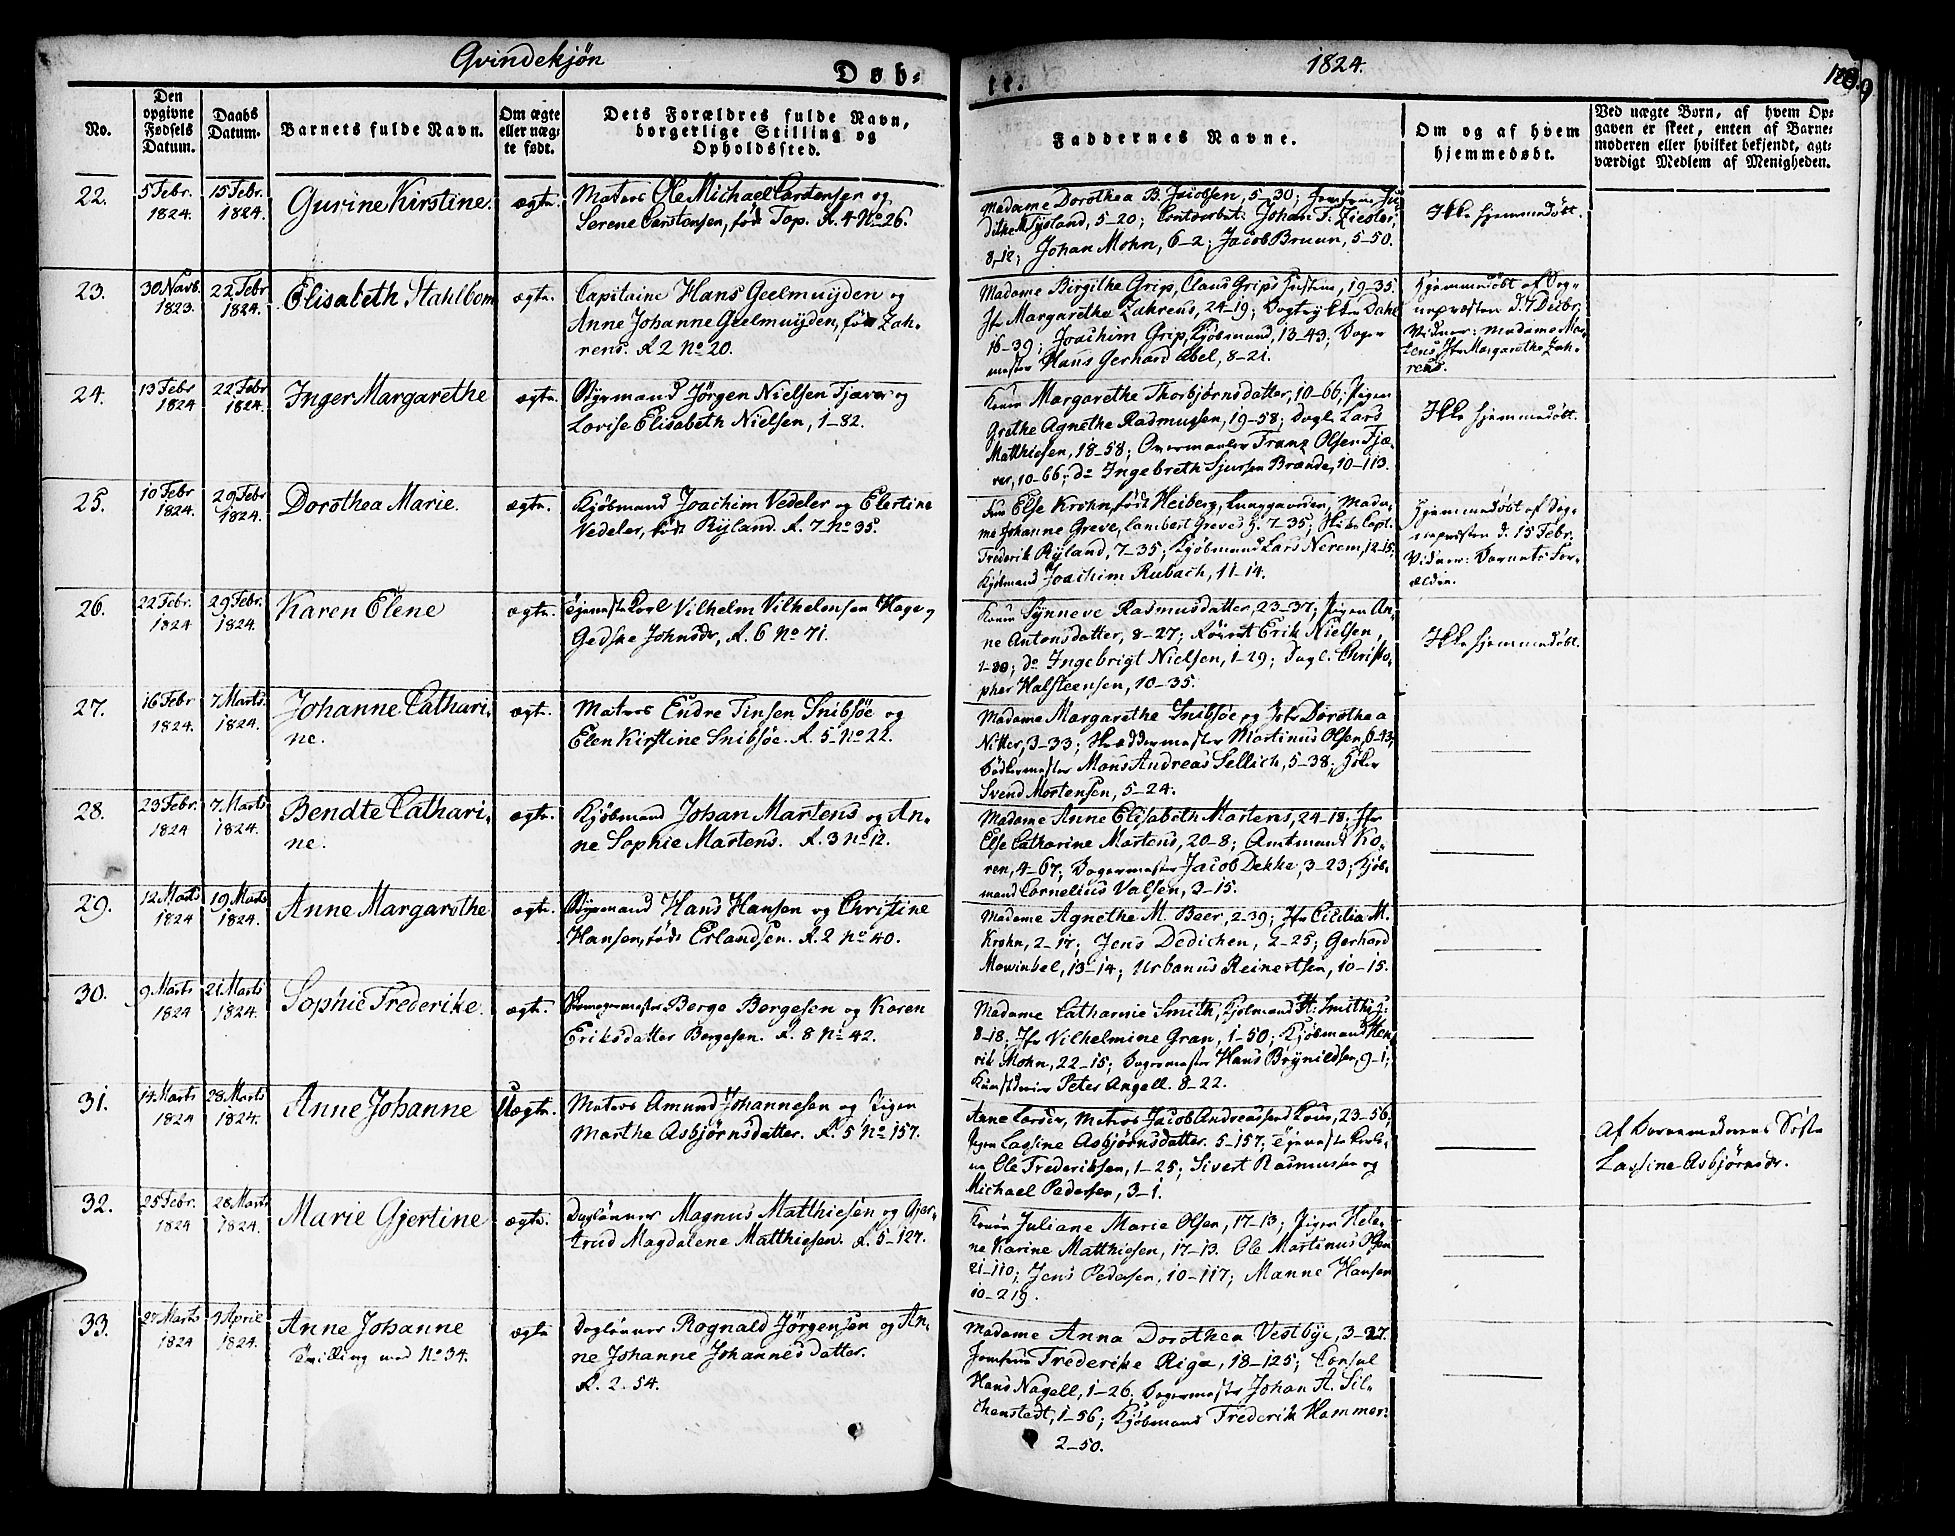 Qvindekjøn
Døb-
te.
1824.
189
No.
Den opgivne Fødsels Datum.
Daabs Datum.
Barnets fulde Navn.
Om ægte eller uægte født.
Dets Forældres fulde Navn, borgerlige Stilling og Opholdssted.
Faddernes Navne.
Om og af hvem hjemmedøbt.
Ved uægte Børn, af hvem Opgaven er skeet, enten af Barnemoderen eller hvilket bekjendt, agtværdigt Medlem af Menigheden.
22.
5 Febr. 1824.
15 Febr. 1824.
Gurine Kirstine.
ægte.
Matros Ole Michael Carstensen og
Serene Carstensen, fød Top. R. 4 No 26.
Madame Dorothea B. Jacobsen, 5-30; Jomfrue Ju-
dithe M Tysland, 5-20; Contoirbet: Johan F. Ziegler,
8-12; Johan Mohn, 6-2; Jacob Bruun, 5-50.
Ikke hjemmedøbt.
23.
30 Novb. 1823.
22 Febr 1824.
Elisabeth Stahlbom
ægte.
Capitaine Hans Geelmuijden og
Anne Johanne Geelmuijden, fød Zah-
rens. R 2 No 20.
Madame Birgithe Grip, Claus Grips Hustru, 19-35
Jfr Margaretha Zahrens, 24-19; Dahl
16-39; Joachim Grip, Kjøbmand, 13-43; Bager
mester Hans Gerhard Abel, 8-21.
Hjemmedøbt af Sog-
nepræsten d. 7 Decbr;
Vidner: Madame
Jfr Margarethe Zah-
rens.
24.
13 Febr 1824
22 Febr 1824.
Inger Margarethe
ægte.
Styrmand Jørgen Nielsen Tjæver og
Lovise Elisabeth Nielsen, 1-82.
Konen Margarethe Thorbjørnsdatter, 10-66, Pigen
Grethe Agnethe Rasmussen, 19-58; Dagl. Lars
Matthiesen, 18-58; Franz Olsen Tjæ-
ver, 10-66; do Ingebreth Sjursen Brænde, 10-113.
Ikke hjemmedøbt.
25.
10 Febr 1824.
29 Febr 1824.
Dorothea Marie.
ægte.
Kjøbmand Joachim Vedeler og Elertine
Vedeler, født Ryland. R. 7 No 35.
Fru Else Krohn, født Heiberg, Lunggaarden, Mada-
me Johanne Greve, Lambert Greves H. 7-35; Skibs Capt.
Frederik Ryland, 7-35; Kjøbmand Lars Nerem, 12-15;
Kjøbmand Joachim Rubach, 11-14.
Hjemmedøbt af Sog-
nepræsten d. 15 Febr.
Vidner: Barnets For-
ældre.
26.
22 Febr. 1824
29 Febr. 1824.
Karen Elene
ægte.
Tjeneste Karl Vilhelm Vilhelmsen Hage og
Gedske Johnsdr, R. 6 No 71.
Konen Synneve Rasmusdatter, 23-37; Pigen An-
ne Antonsdatter, 8-27; Erik Nielsen,
1-30; do Ingebrigt Nielsen, 1-29; Dagl. Christo-
pher Halsteensen, 10-35.
Ikke hjemmedøbt.
27.
16 Febr 1824.
7 Marts. 1824.
Johanne Cathari-
ne.
ægte.
Matros Endre Tinsen Snibsöe og
Elen Kirstine Snibsöe. R. 5 No 22.
Madame Margarethe Snibsöe og Jfr Dorothea
Nitter, 3-33; Skræddermester Martinus Olsen, 6-43;
Bødkermester Mons Andreas Sellich, 5-38;
Svend Mortensen, 5-24.
28.
23 Febr. 1824
7 Marts 1824.
Bendte Cathari-
ne.
ægte.
Kjøbmand Johan Martens og An-
ne Sophie Martens. R. 3 No 12.
Madame Anne Elisabeth Martens, 24-18; Jfr
Else Catharine Martens, 20-8; Amtmand Ko-
ren, 4-67; Bagermester Jacob Dekke, 3-23; Kjøb-
mand Cornelius Valsen, 3-15.
29.
12 Marts 1824
19 Marts 1824.
Anne Margarethe
ægte.
Styrmand Hans Hansen og Christine
Hansen, født Erlandsen. R. 2 No 40.
Madame Agnethe M. Beer, 2-39; Jfr Cecilia M.
Krohn, 2-17; Jens Dedichen, 2-25; Gerhard
Mowinkel, 13-14; Urbanus Reinertsen, 10-15.
30.
9 Marts 1824
21 Marts 1824.
Sophie Frederike.
ægte.
Skomagermester Berge Bergesen og Karen
Eriksdatter Bergesen. R. 8 No 42.
Madame Catharine Smith, Kjøbmand H: Smiths H:
8-18; Jfr Vilhelmine Gran, 1-50; Kjøbmand Hen-
rik Mohn, 22-15; Bagermester Hans Brynildsen, 9-1;
Kunstdreier Peter Angell. 8-22.
31.
14 Marts 1824
28 Marts 1824.
Anne Johanne
Uægte.
Matros Amund Johannesen og Pigen
Marthe Asbjørnsdatter. R. 5 No 157.
Anne Larsdr, Matros Jacob Andreassens Kone, 23-56;
Pigen Lassine Asbjørnsdatter. 5-157.
Ole Frederiksen, 1-25; Sivert Rasmussen og
Michael Pedersen, 3-1.
Af Barnemoderens Søster
Lassine Asbjørnsdr.
32.
25 Febr. 1824
28 Marts 1824.
Marie Gjertine
ægte.
Daglønner Magnus Matthiesen og Gjer-
trud Magdalene Matthiesen. R. 5-127.
Konen Juliane Marie Olsen, 17-13; Pigen Hele-
ne Karine Matthiesen, 17-13. Ole Martinus Olsen
21-110; Jens Pedersen, 10-117; Manne Hansen
10-219.
33.
27 Marts 1824
9 April 1824.
Anne Johanne
Tvilling med No 34.
ægte
Daglønner Rognald Jørgensen og An-
ne Johanne Johannesdatter.
R. 2. 54.
Madame Anna Dorothea Vestbye, 3-27.
Jomfrue Frederike Riga, 18-125; Consul
Hans Nagell, 1-26; Bagermester Johan A. Sil-
chenstedt, 1-56; Kjøbmand Frederik Hammer
2-50.